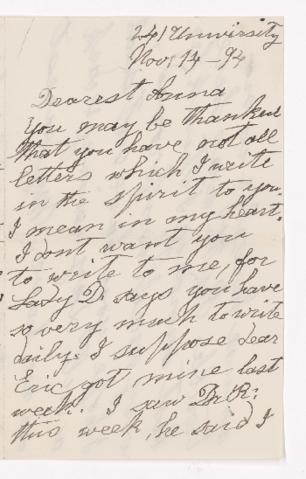 241 University
Nov 14 - 94
Dearest Anna
You may be thankful
that you have not all
letters which I write
in the spirit to you.
I mean in my heart.
I dont want you
to write to me, for
Lady D. says you have
so very much to write
daily. I suppose dear
Eric got mine last
week. I saw Dr R:
this week, he said I